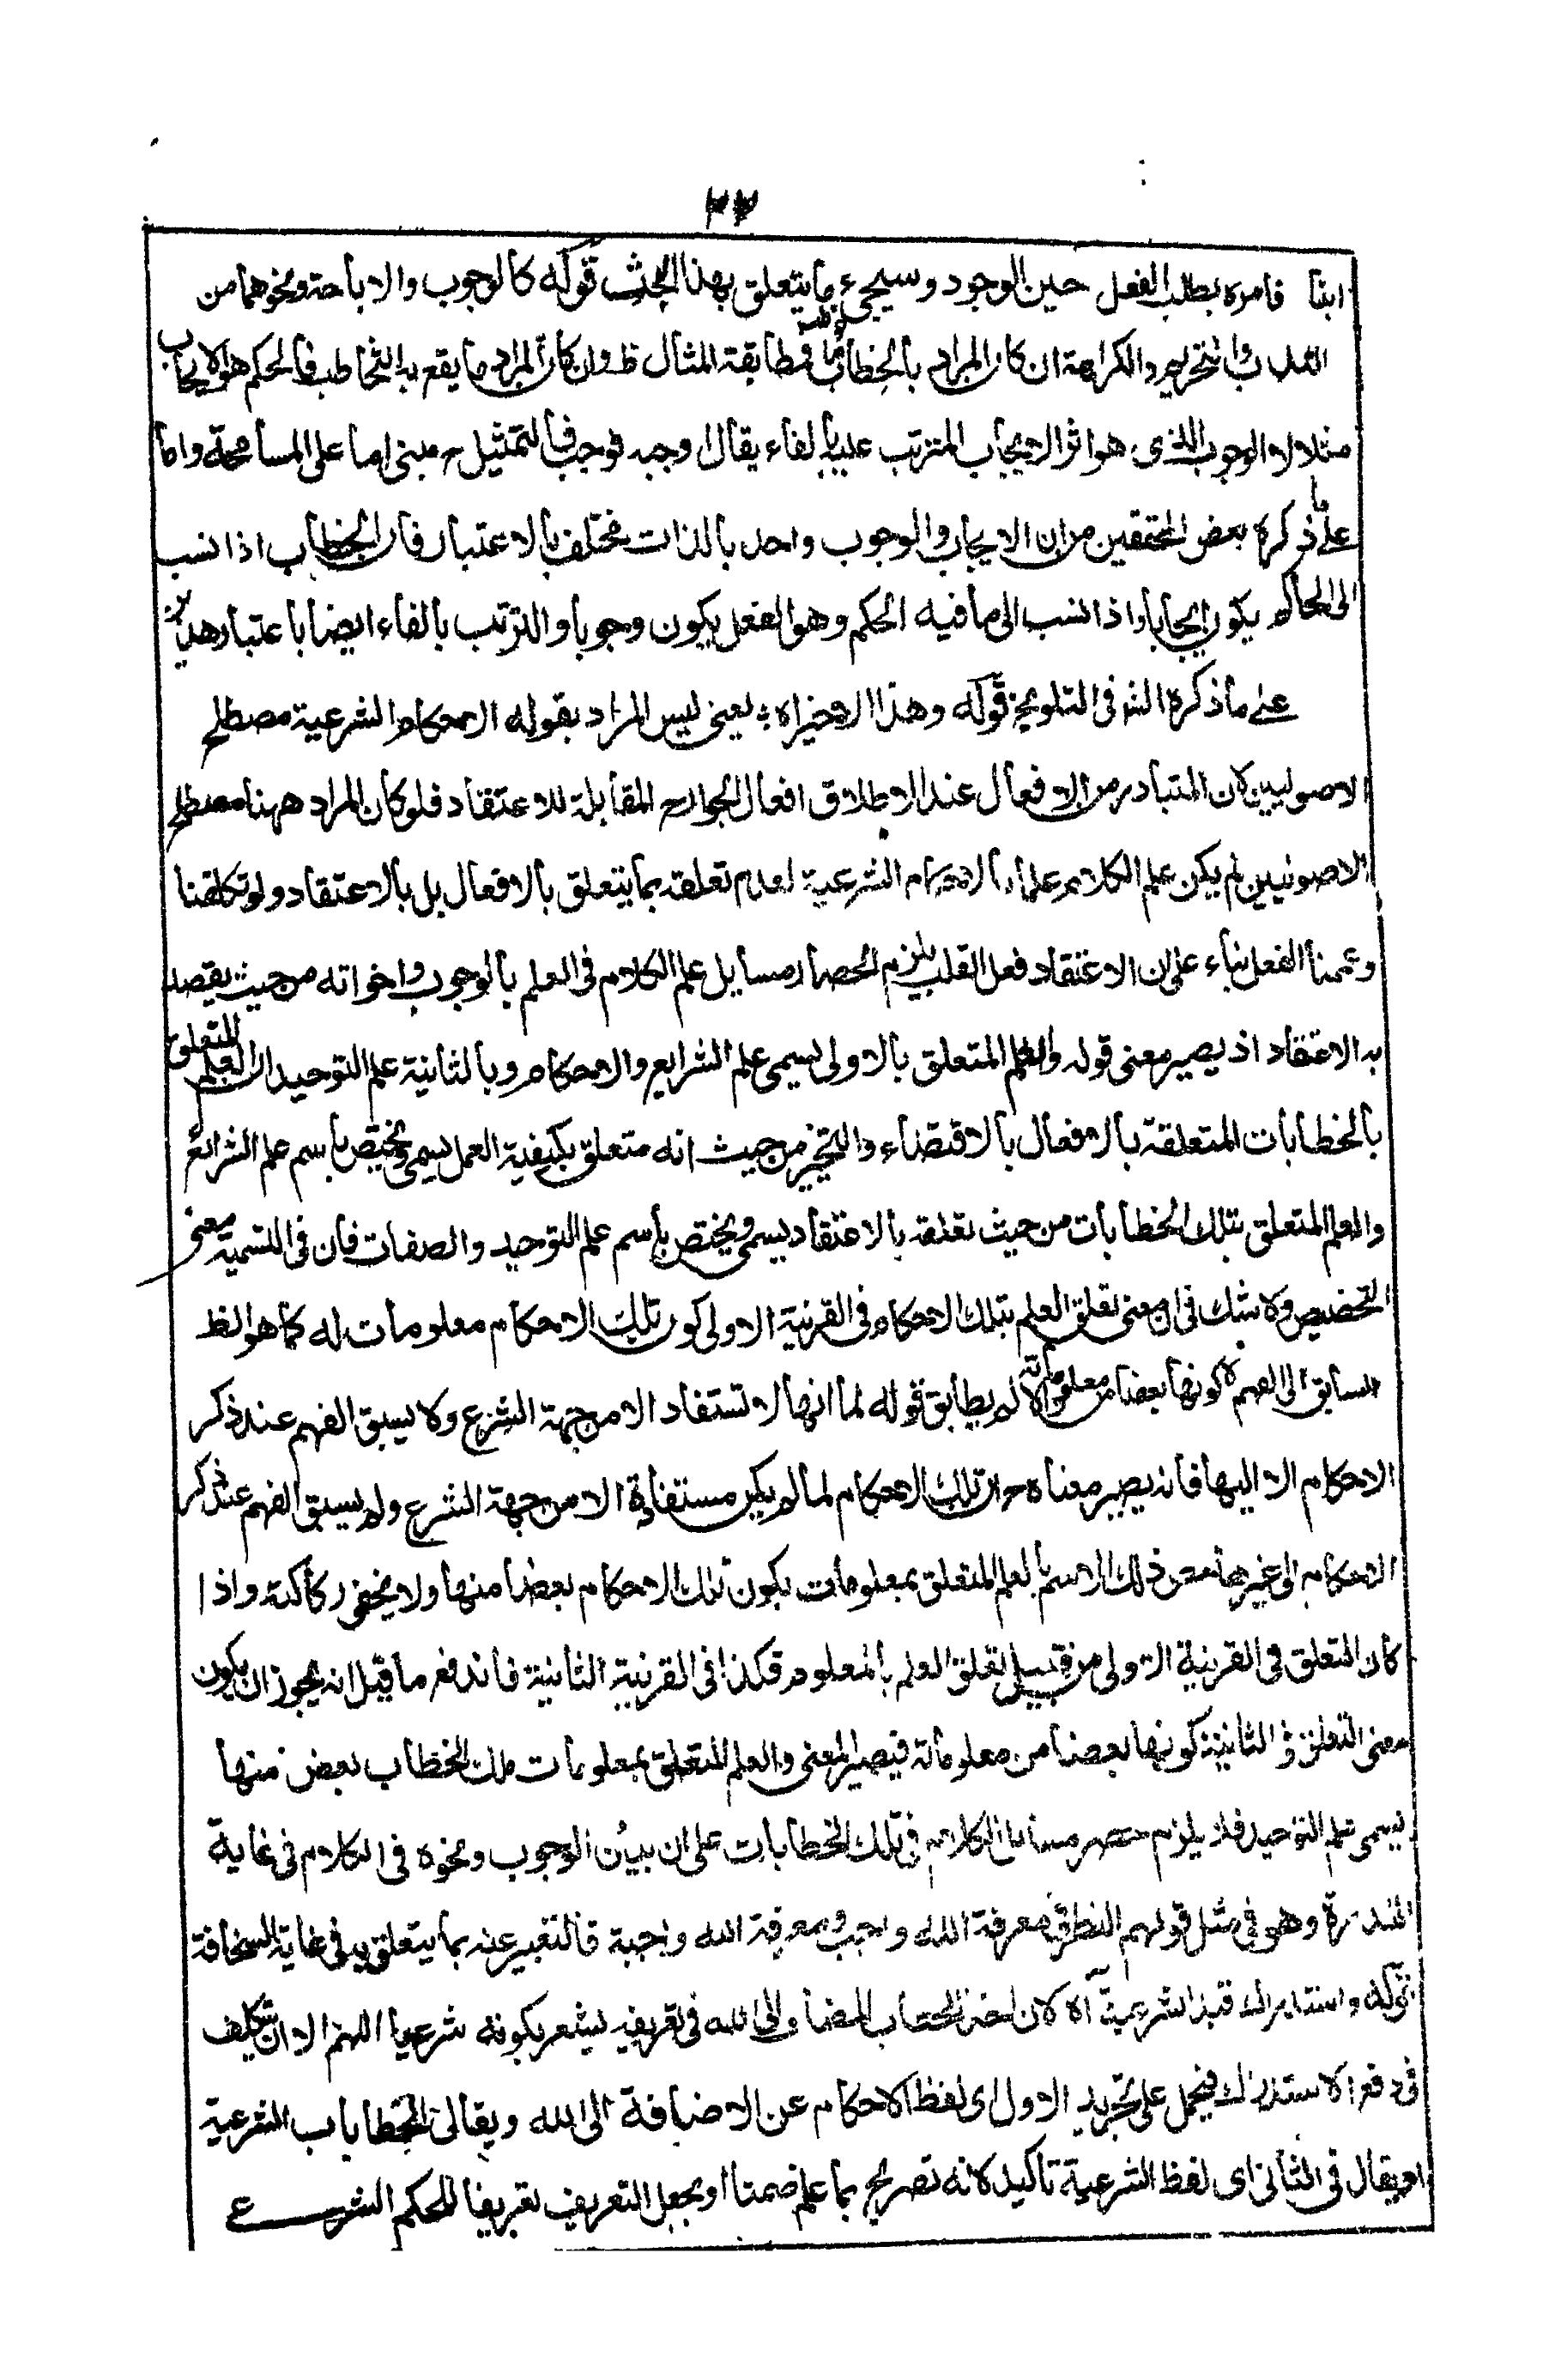 ٢٢
ابنا فامره بطلب الفعل حين الوجود وسيجيء ما يتعلق بهذا البحث قوله كالوجوب والاباحة ونحوهما من
الندب والتحريم والكراهة ان كان المراد بالخطاب فمطابقة المثال ظ وان كان المراد ما يقع به التخاطب فالحكم هو الايجاب
مثلا لا الوجوب الذى هو اثر الايجاب المترتب عليه بالفاء يقال اوجبه فوجب فالتمثيل ح مبنى اما على المسامحة واما
على ما ذكره بعض المحققين من ان الايجاب والوجوب واحد بالذات مختلف بالاعتبار فان الخطاب اذا نسب
الى الحاكم يكون ايجابا واذا نسب الى ما فيه الحكم وهو الفعل يكون وجوبا والترتب بالفاء ايضا باعتبار هذين
على ما ذكره الش فى التلويح قوله وهذا الاخير اه يعنى ليس المراد بقوله الاحكام الشرعية مصطلح
الاصوليين لان المتبادر من الافعال عند الاطلاق افعال الجوارح المقابلة للاعتقاد فلو كان المراد ههنا مصطلح
الاصوليين لم يكن علم الكلام علما بالاحكام الشرعية لعدم تعلقه بما يتعلق بالافعال بل بالاعتقاد ولو تكلفنا
وعممنا الفعل بناء على ان الاعتقاد فعل القلب يلزم انحصار مسايل علم الكلام فى العلم بالوجوب واخواته من حيث يقصد
به الاعتقاد اذ يصير معنى قوله والعلم المتعلق بالاولى يسمى علم الشرايع والاحكام وبالثانية علم التوحيد ان العلم المتعلق
بالخطابات المتعلقة بالافعال بالاقتضاء والتخيير من حيث انه متعلق بكيفية العمل يسمى ويختص باسم علم الشرائع
والعلم المتعلق بتلك الخطابات من حيث تعلقه بالاعتقاد يسمى ويختص باسم علم التوحيد والصفات فان فى التسمية معنى
التخصيص ولا شك فى ان معنى تعلق العلم بتلك الاحكام فى القرينة الاولى كون تلك الاحكام معلومات له كما هو الظ
السابق الى الفهم لا كونها بعضا من معلوماته والا لم يطابق قوله لما انها لا تستفاد الا من جهة الشرع ولا يسبق الفهم عند ذكر
الاحكام الا اليها فانه يصير معناه ح ان تلك الاحكام لما لم يكن مستفادة الا من جهة الشرع ولم يسبق الفهم عند ذكر
الاحكام الى غيرها خص ذلك الاسم بالعلم المتعلق بمعلومات يكون تلك الاحكام بعضا منها ولا يخفى ركاكته واذا
كان المتعلق فى القرينة الاولى من قبيل تعلق العلم بالمعلوم فكذا فى القرينة الثانية فاندفع ما قيل انه يجوز ان يكون
معنى التعلق فى الثانية كونها بعضا من معلوماته فيصير المعنى والعلم المتعلق بمعلومات تلك الخطاب بعض منها
يسمى علم التوحيد فلا يلزم حصر مسائل الكلام فى تلك الخطابات على ان بيان الوجوب ونحوه فى الكلام فى غاية
الندرة وهو فى مثل قولهم النظر فى معرفة الله واجب ومعرفة الله واجبة فالتعبير عنه بما يتعلق به فى غاية السخافة
قوله واستدراك قيد الشرعية آه لان اخذ الخطاب المضاف الى الله فى تعريفه يشعر بكونه شرعيا اللهم الا ان يتكلف
فى دفع الاستدراك فيحمل على تجريد الاول اى لفظ الاحكام عن الاضافة الى الله ويقال الخطابات الشرعية
او يقال فى الثانى اى لفظ الشرعية تاكيد لانه تصريح بما علم ضمنا او يجعل التعريف تعريفا للحكم الشرعى